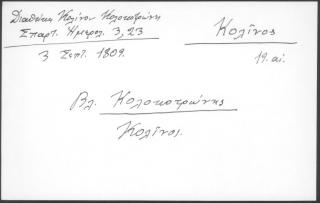 Διαθήκη Κολίνου Κολοκοτρώνη
Σπαρτ. Ημερολ. 3, 23
3 Σεπτ. 1809.
Κολῖνος
19. αἰ.
Βλ. Κολοκοτρώνης
Κολῖνος.